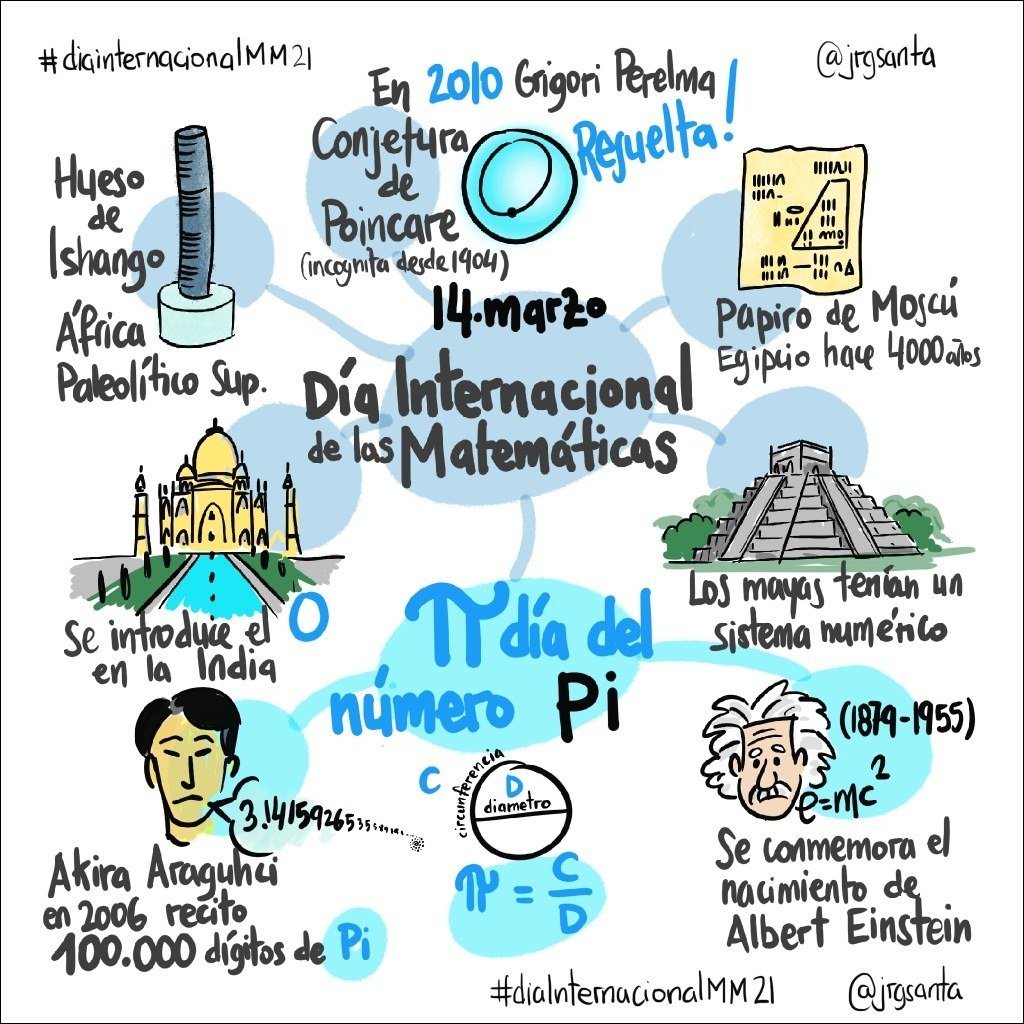 #diainternacionalMM21
@jrgsanta
En 2010 Grigori Perelma
Conjetura
de
Poincare
(incognita desde 1904)
Resuelta!
Hueso
de
Ishango
África
Paleolítico Sup.
Papiro de Moscú
Egipcio hace 4000 años
14.marzo
Día Internacional
de las Matemáticas
Se introduce el 0
en la India
Los mayas tenían un
sistema numérico
π día del
número Pi
3.14159265358
Akira Araguhci
en 2006 recito
100.000 dígitos de Pi
C
circunferencia
D
diametro
π = C
D
(1879-1955)
e=mc²
Se conmemora el
nacimiento de
Albert Einstein
#diaInternacionalMM21
@jrgsanta